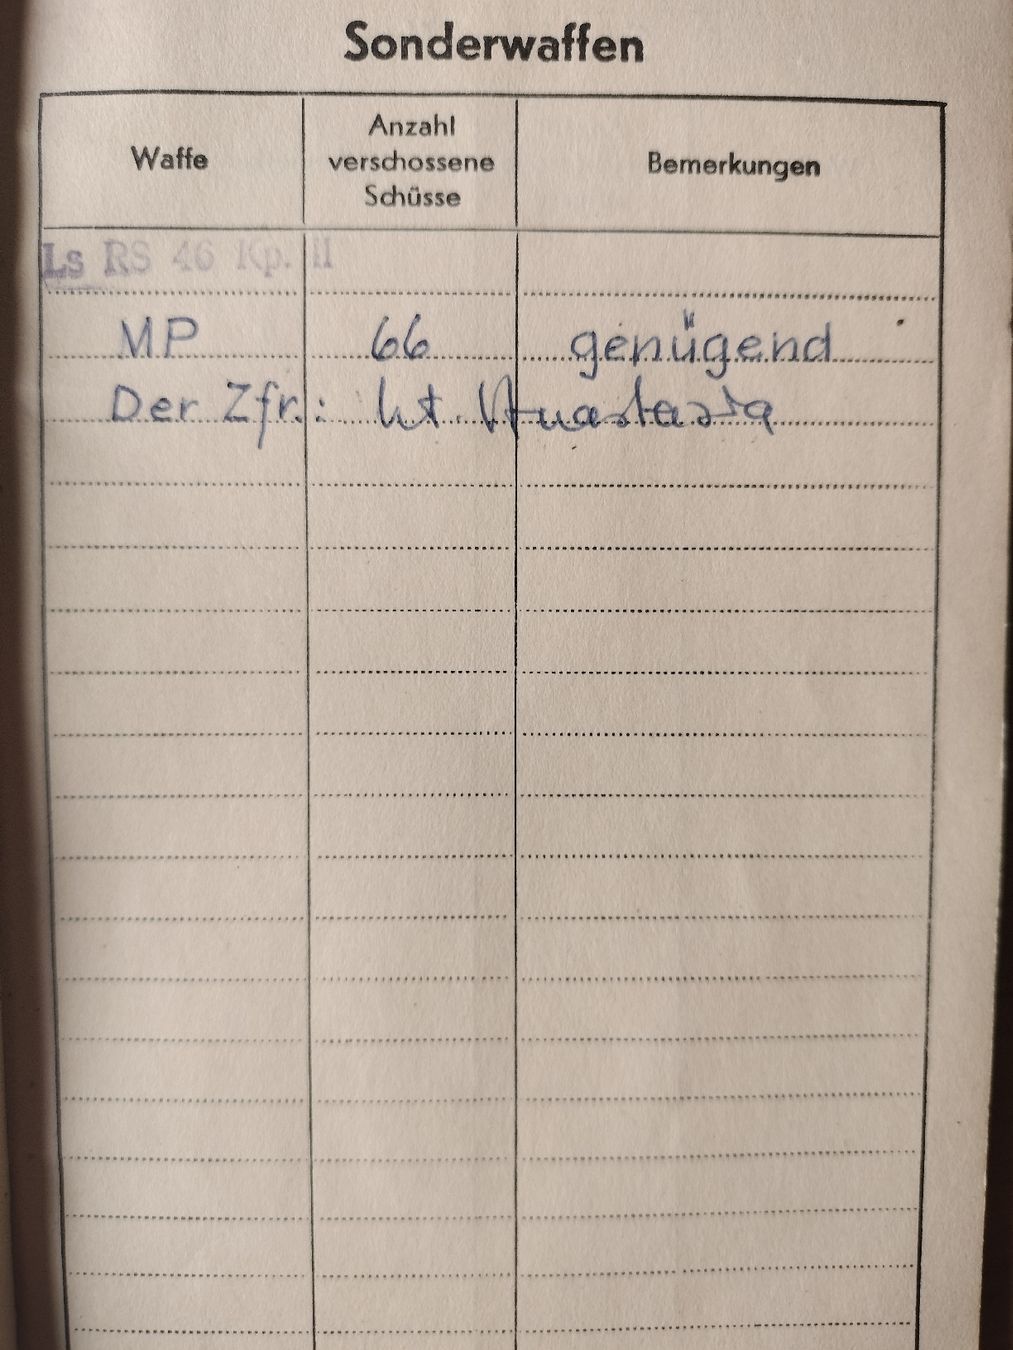 Sonderwaffen
Waffe
Anzahl
verschossene
Schüsse
Bemerkungen
Ls RS 46 Kp. II
MP 66 genügend
Der Zfr.: Lt. Anastasia